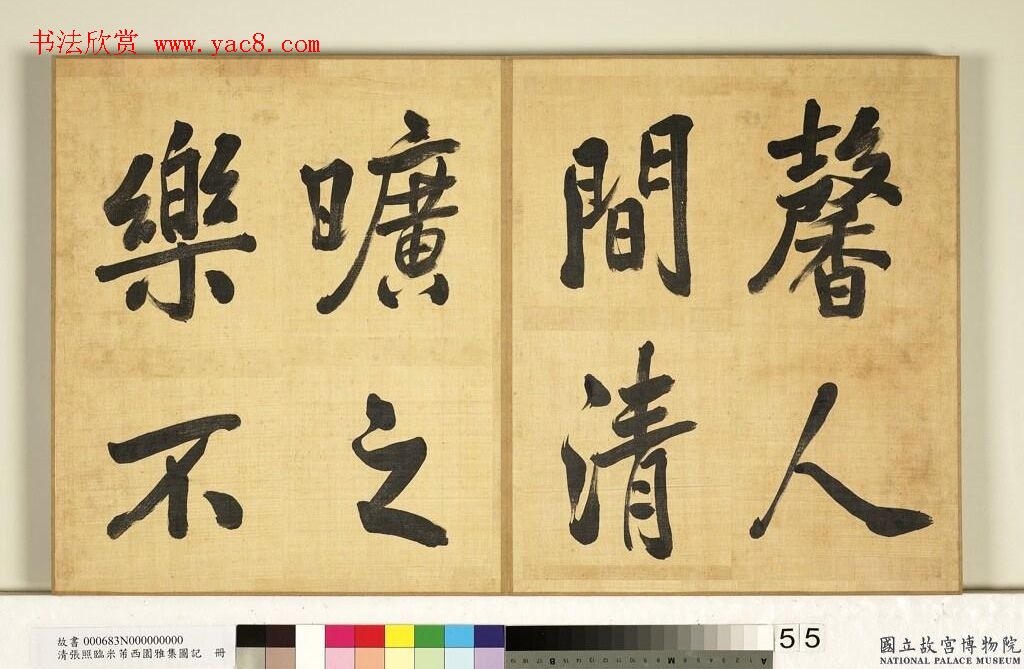 书法欣赏 www.yac8.com
馨人
間清
曠之
樂不
故書 000683N000000000
清張照臨米芾西園雅集圖記 冊
55
國立故宮博物院
NATIONAL PALACE MUSEUM